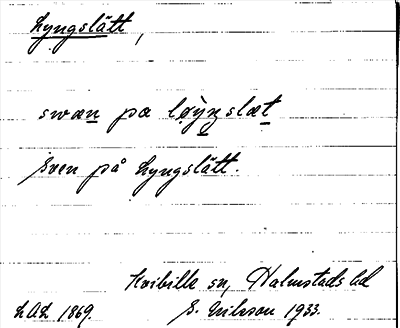 Lyngslätt,
swæn pæ løyŋslæt
Sven på Lyngslätt.
Kvibille sn, Halmstads hd
LAL 1869. S. Nilsson 1933.